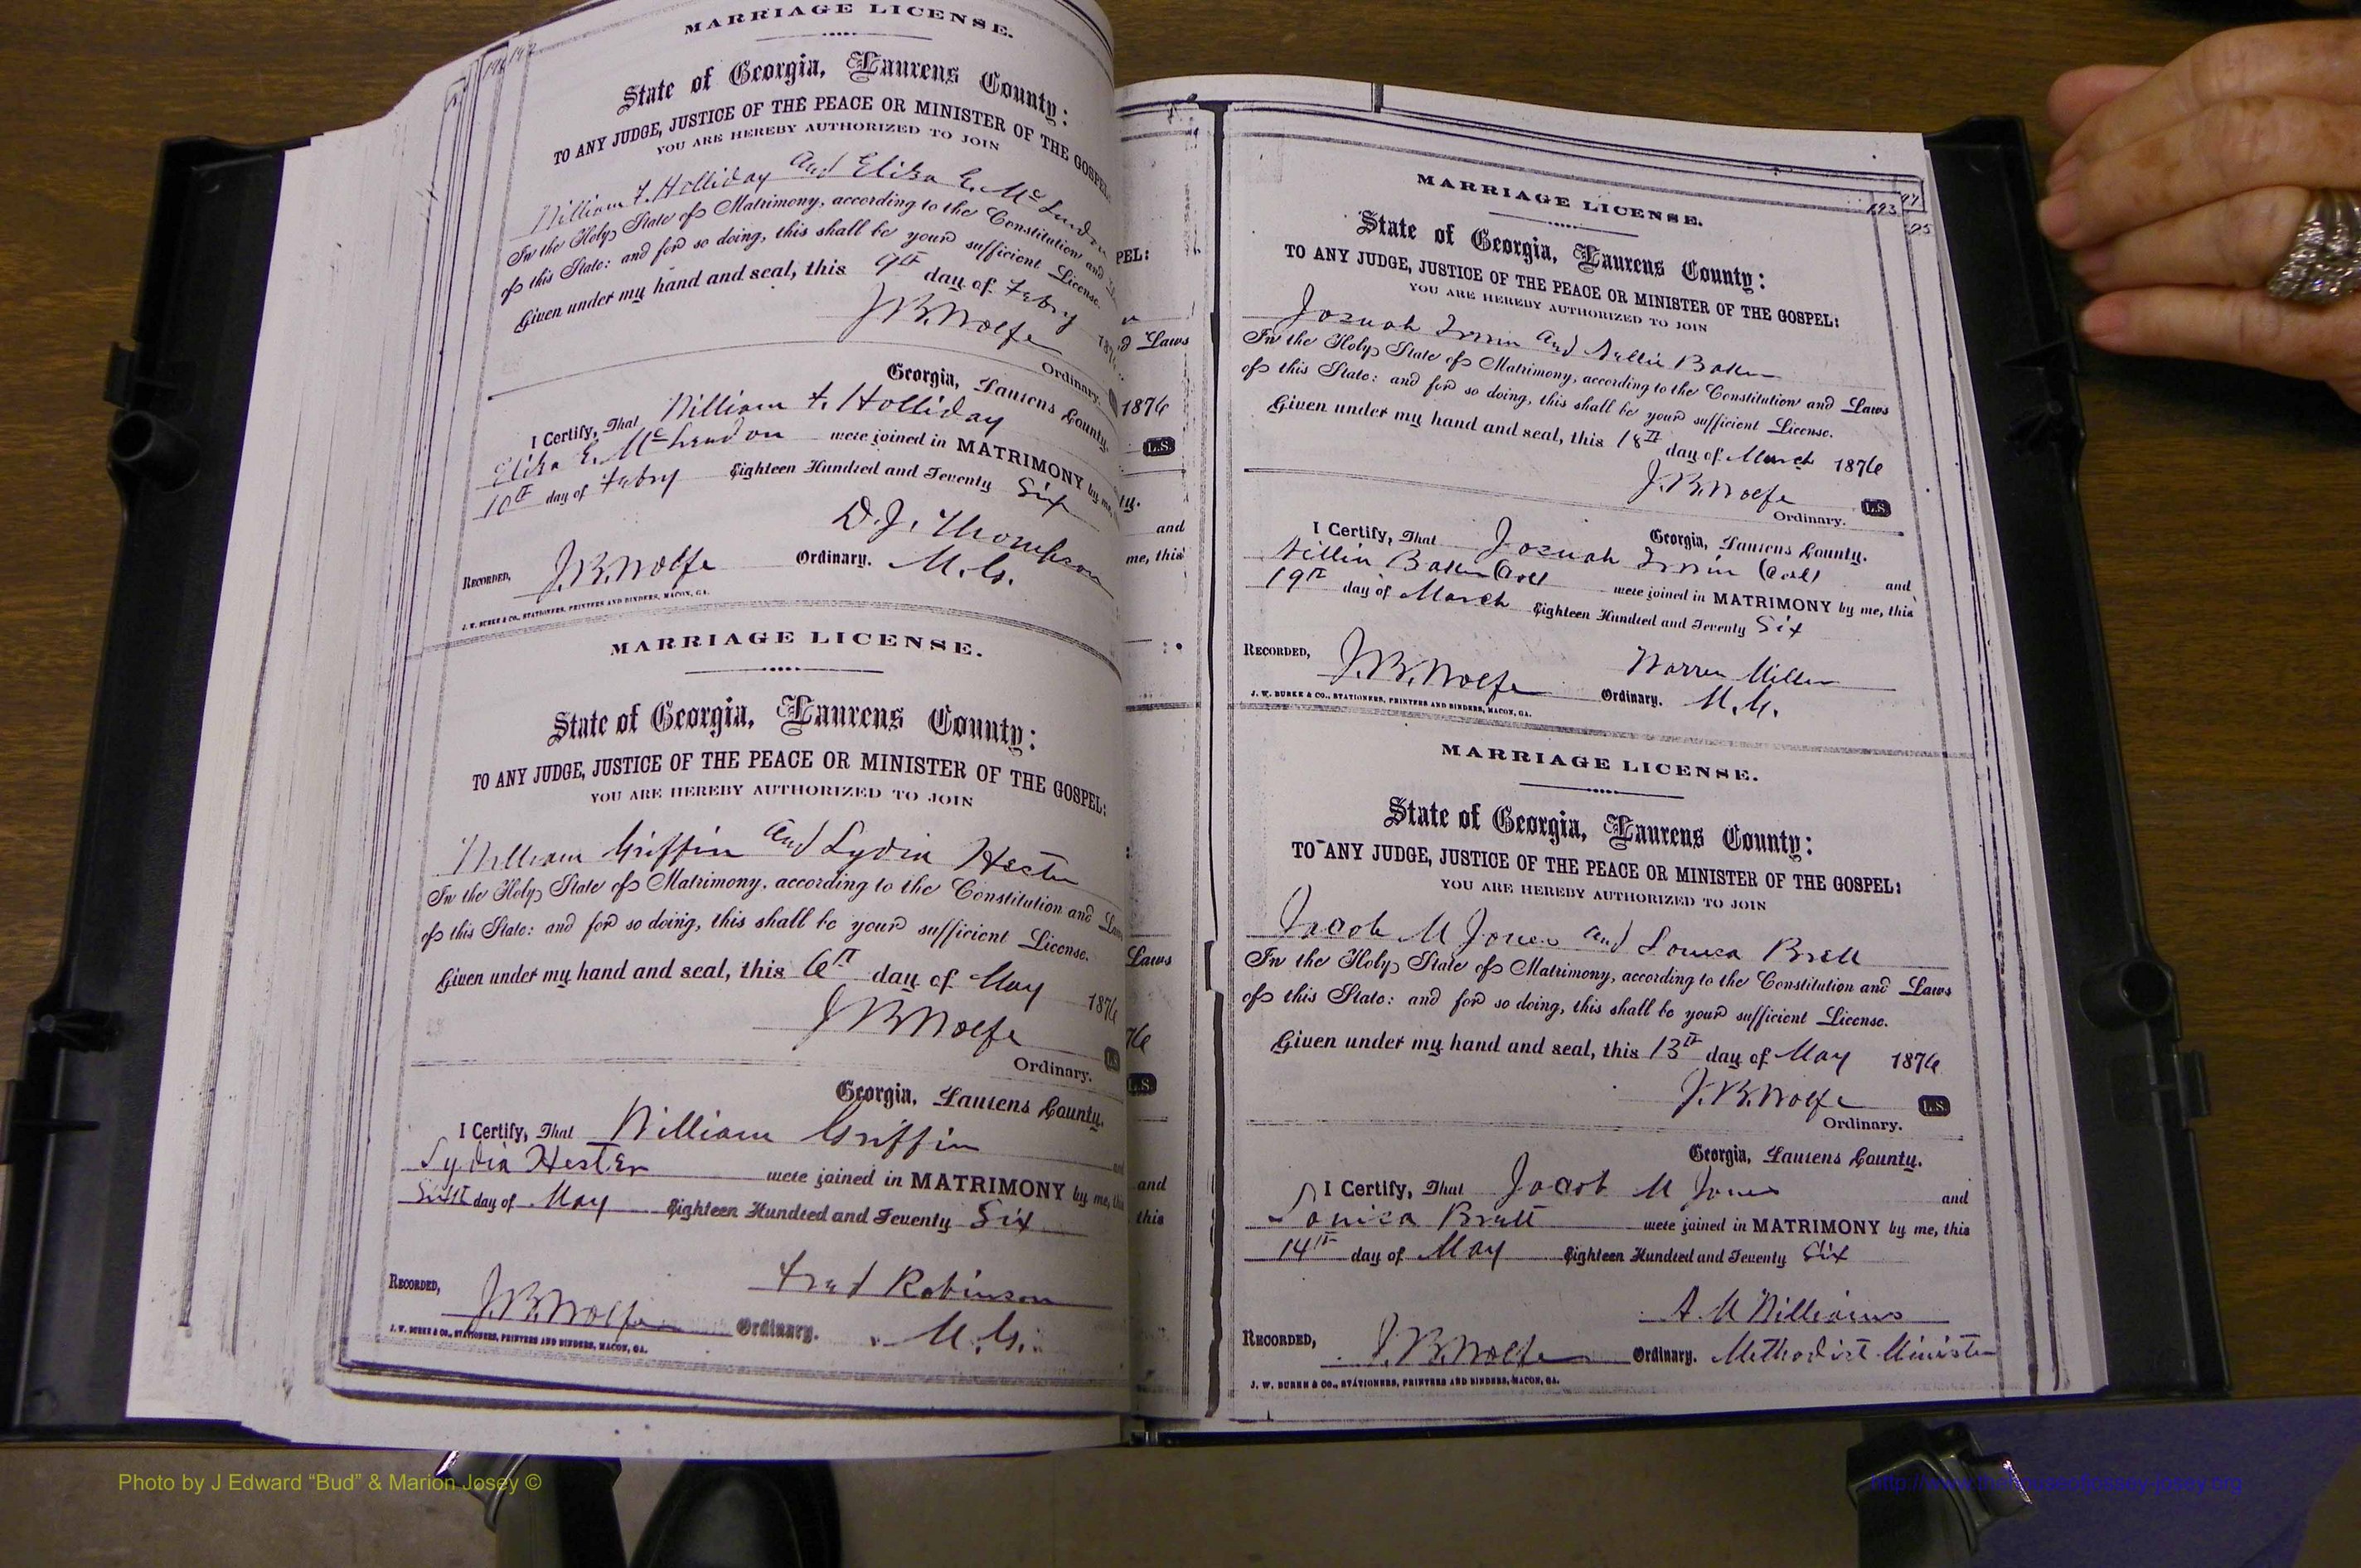 MARRIAGE LICENSE.
State of Georgia, Laurens County:
TO ANY JUDGE, JUSTICE OF THE PEACE OR MINISTER OF THE GOSPEL:
YOU ARE HEREBY AUTHORIZED TO JOIN
William F. Holliday and Eliza E. McLendon
In the Holy State of Matrimony, according to the Constitution and
of this State: and for so doing, this shall be your sufficient License.
Given under my hand and seal, this 9th day of Febry 1876
J.B. Wolfe
Ordinary.
Georgia, Laurens County.
I Certify, That William F. Holliday
Eliza E. McLendon were joined in MATRIMONY by me,
10th day of Febry Eighteen Hundred and Seventy Six
D.J. Thompson
RECORDED, J.B. Wolfe Ordinary. M.G.
J. W. BURKE & CO., STATIONERS, PRINTERS AND BINDERS, MACON, GA.
MARRIAGE LICENSE.
State of Georgia, Laurens County:
TO ANY JUDGE, JUSTICE OF THE PEACE OR MINISTER OF THE GOSPEL:
YOU ARE HEREBY AUTHORIZED TO JOIN
William Griffin and Lydia Hester
In the Holy State of Matrimony, according to the Constitution and Laws
of this State: and for so doing, this shall be your sufficient License.
Given under my hand and seal, this 6th day of May 1876
J B Wolfe L.S.
Ordinary.
Georgia, Laurens County.
I Certify, That William Griffin and
Lydia Hester were joined in MATRIMONY by me, this
day of May Eighteen Hundred and Seventy Six
Fred Robinson
RECORDED, J.B. Wolfe Ordinary. M.G.
J. W. BURKE & CO., STATIONERS, PRINTERS AND BINDERS, MACON, GA.
PEL:
Laws
1876
L.S.
ty.
and
me, this
Laws
76
L.S.
and
this
193 97
95
MARRIAGE LICENSE.
State of Georgia, Laurens County:
TO ANY JUDGE, JUSTICE OF THE PEACE OR MINISTER OF THE GOSPEL:
YOU ARE HEREBY AUTHORIZED TO JOIN
Josuah Irwin and Nellie Baker
In the Holy State of Matrimony, according to the Constitution and Laws
of this State: and for so doing, this shall be your sufficient License.
Given under my hand and seal, this 18th day of March 1876
J.B. Wolfe L.S.
Ordinary.
Georgia, Laurens County.
I Certify, That Josuah Irwin (Col) and
Nellie Baker (Col) were joined in MATRIMONY by me, this
19th day of March Eighteen Hundred and Seventy Six
Warren Miller
RECORDED, J.B. Wolfe Ordinary. M.G.
J. W. BURKE & CO., STATIONERS, PRINTERS AND BINDERS, MACON, GA.
MARRIAGE LICENSE.
State of Georgia, Laurens County:
TO ANY JUDGE, JUSTICE OF THE PEACE OR MINISTER OF THE GOSPEL:
YOU ARE HEREBY AUTHORIZED TO JOIN
Jacob M Jones and Louisa
In the Holy State of Matrimony, according to the Constitution and Laws
of this State: and for so doing, this shall be your sufficient License.
Given under my hand and seal, this 13th day of May 1876
J.B. Wolfe L.S.
Ordinary.
Georgia, Laurens County.
I Certify, That Jacob M Jones and
Louisa were joined in MATRIMONY by me, this
14th day of May Eighteen Hundred and Seventy Six
A. M Williams
RECORDED, J.B. Wolfe Ordinary. Methodist Minister
J. W. BURKE & CO., STATIONERS, PRINTERS AND BINDERS, MACON, GA.
Photo by J Edward “Bud” & Marion Josey ©
http://www.thehouseofjossey-josey.org